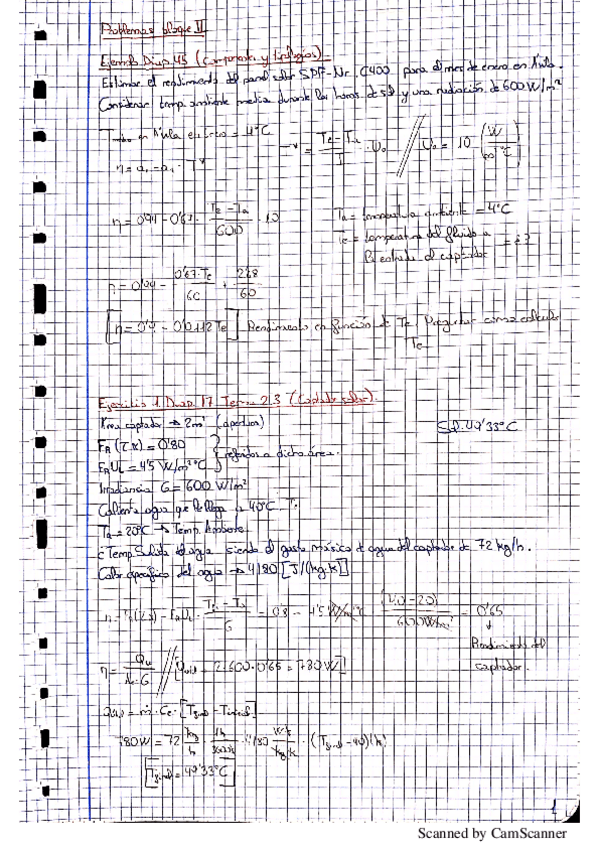 Problemas bloque II
Ejemplo Diap. 45 (Componentes y tipologías).
Estimar el rendimiento del panel solar SDP-Nr. C400 para el mes de enero en Ávila.
Considerar temp. ambiente media durante las horas de sol y una radiación de 600 W/m²
en Ávila enero = 4°C
= Te - Ta / I · U₀ // U₀ = 10 (W / m²°C)
η = a₀ - a₁ · T*
η = 0'94 - 0'67 · Te - Ta / 600 · 10
Ta = temperatura ambiente = 4°C
Te = temperatura del fluido a
la entrada al captador = ¿?
η = 0'94 - 0'67·Te / 60 + 2'68 / 60
Te] Rendimiento en función de Te. Preguntar como calcular
Te
Ejercicio 1 Diap. 17 Tema 2.3 (Captador solar).
Área captador → 2m² (apertura)
Sol. 49'33°C
FR (τα) = 0'80
FRUL = 4'5 W/m²°C } referidos a dicha área.
Irradiancia G = 600 W/m²
Calienta agua que le llega a 40°C
Ta = 20°C → Temp. Ambiente
¿Temp. Salida del agua siendo el gasto másico de agua del captador de 72 kg/h.
Calor específico del agua → 4180 [J/(kg·K)]
= 0'8 - 4'5 W/m²°C · (40 - 20) / 600 W/m² = 0'65
↓
Rendimiento del
captador.
η = Qu / Ac·G // = 2·600·0'65 = 780 W]
= ṁ · Ce · [Tsal - Tent]
780W = 72 kg/h · 1h/3600s · 4180 W·s/kg·K · (Tsal - 40)(K)
[Tsal = 49'33°C]
1
Scanned by CamScanner